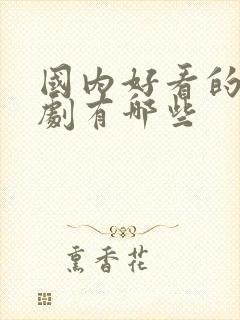 國内好看的
劇有哪些
熏香花